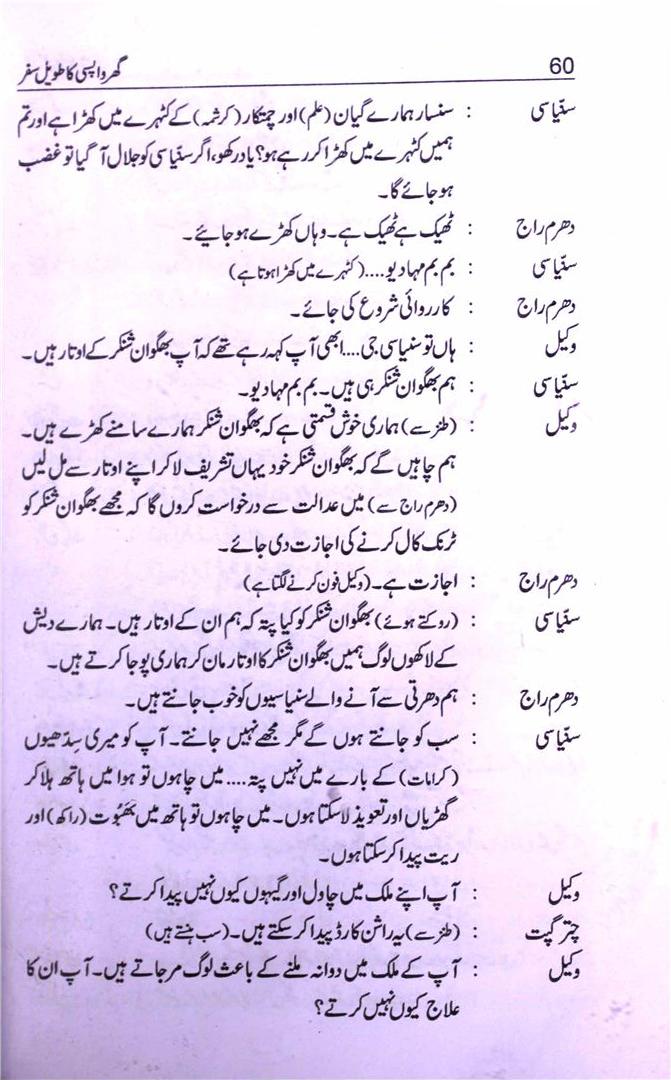 60 گھر واپسی کا طویل سفر
سنّیاسی : سنسار ہمارے گیان (علم) اور چمتکار (کرشمہ) کے کٹہرے میں کھڑا ہے اور تم
ہمیں کٹہرے میں کھڑا کر رہے ہو؟ یاد رکھو، اگر سنّیاسی کو جلال آ گیا تو غضب
ہو جائے گا۔
دھرم راج : ٹھیک ہے ٹھیک ہے۔ وہاں کھڑے ہو جائیے۔
سنّیاسی : بم بم مہادیو.... (کٹہرے میں کھڑا ہوتا ہے)
دھرم راج : کارروائی شروع کی جائے۔
وکیل : ہاں تو سنیاسی جی.... ابھی آپ کہہ رہے تھے کہ آپ بھگوان شنکر کے اوتار ہیں۔
سنّیاسی : ہم بھگوان شنکر ہی ہیں۔ بم بم مہادیو۔
وکیل : (طنز سے) ہماری خوش قسمتی ہے کہ بھگوان شنکر ہمارے سامنے کھڑے ہیں۔
ہم چاہیں گے کہ بھگوان شنکر خود یہاں تشریف لا کر اپنے اوتار سے مل لیں
(دھرم راج سے) میں عدالت سے درخواست کروں گا کہ مجھے بھگوان شنکر کو
ٹرنک کال کرنے کی اجازت دی جائے۔
دھرم راج : اجازت ہے۔ (وکیل فون کرنے لگتا ہے)
سنّیاسی : (روکتے ہوئے) بھگوان شنکر کو کیا پتہ کہ ہم ان کے اوتار ہیں۔ ہمارے دیش
کے لاکھوں لوگ ہمیں بھگوان شنکر کا اوتار مان کر ہماری پوجا کرتے ہیں۔
دھرم راج : ہم دھرتی سے آنے والے سنیاسیوں کو خوب جانتے ہیں۔
سنّیاسی : سب کو جانتے ہوں گے مگر مجھے نہیں جانتے۔ آپ کو میری سِدّھیوں
(کرامات) کے بارے میں نہیں پتہ.... میں چاہوں تو ہوا میں ہاتھ ہلا کر
گھڑیاں اور تعویذ لا سکتا ہوں۔ میں چاہوں تو ہاتھ میں بھَبُوت (راکھ) اور
ریت پیدا کر سکتا ہوں۔
وکیل : آپ اپنے ملک میں چاول اور گیہوں کیوں نہیں پیدا کرتے؟
چتر گپت : (طنز سے) یہ راشن کارڈ پیدا کر سکتے ہیں۔ (سب ہنستے ہیں)
وکیل : آپ کے ملک میں دوا نہ ملنے کے باعث لوگ مر جاتے ہیں۔ آپ ان کا
علاج کیوں نہیں کرتے؟